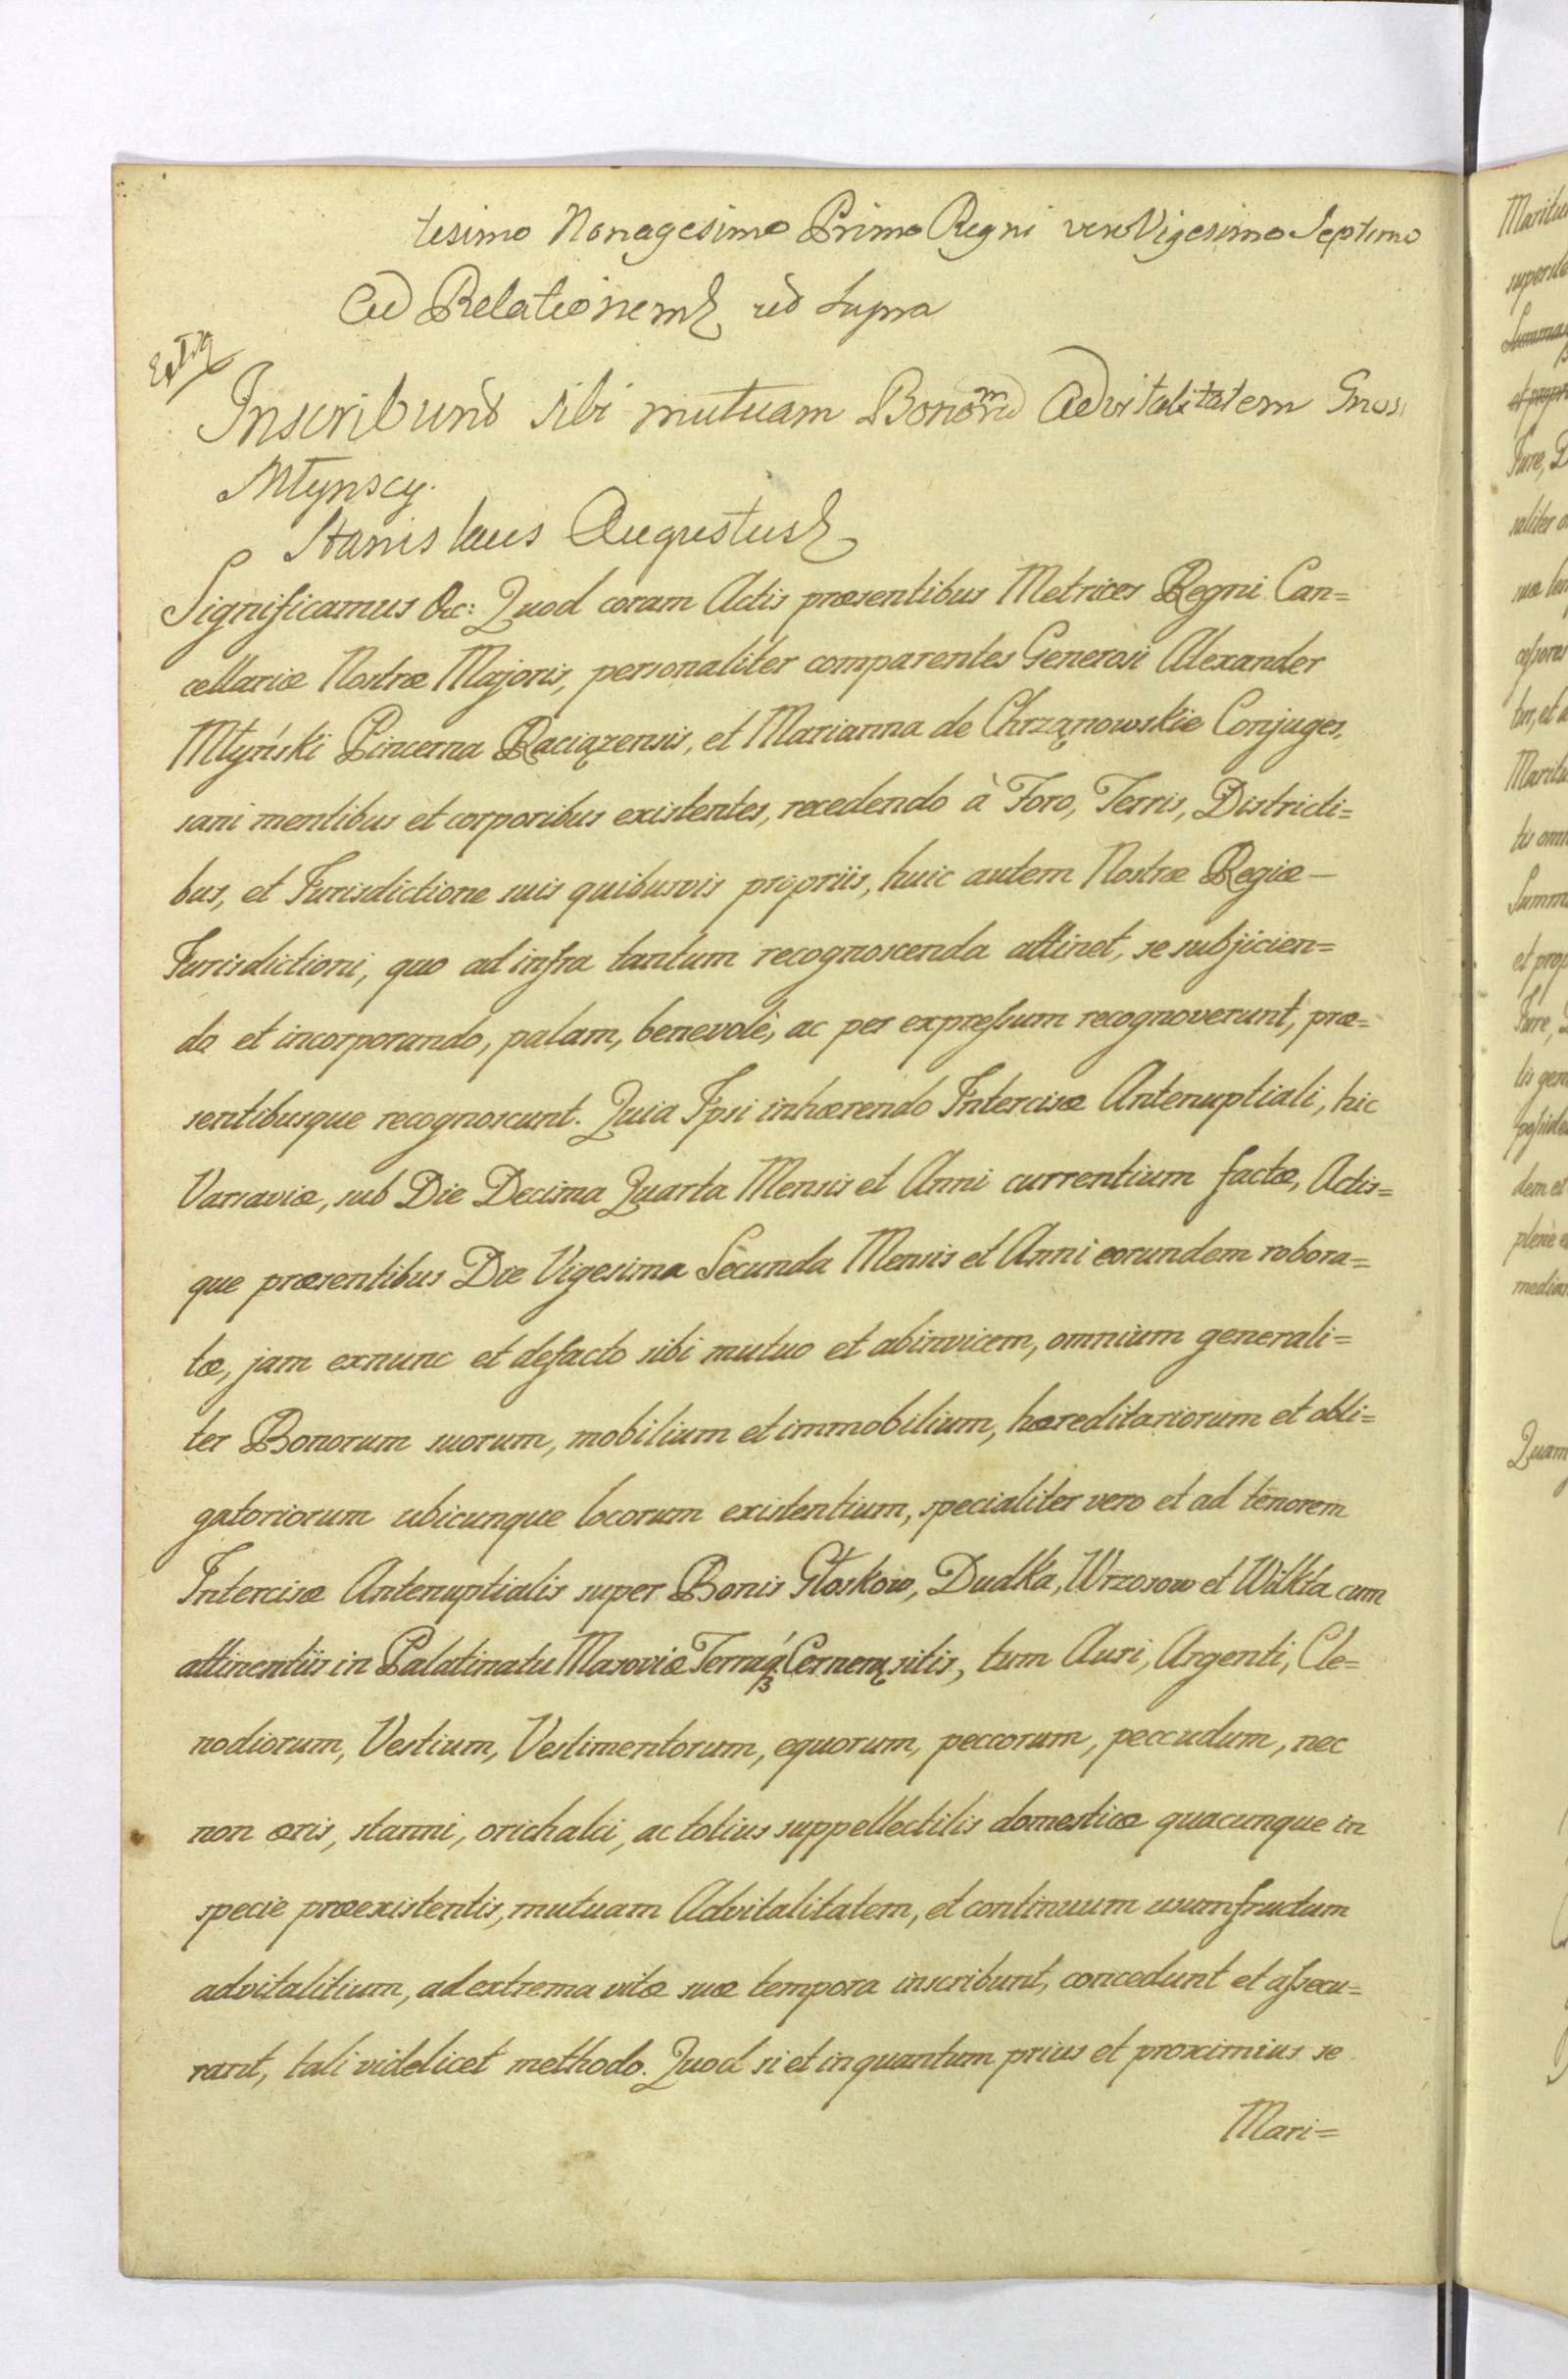 tesimo Nonagesimo Primo Regni vero Vigesimo Septimo
Ad Relationem ut Supra
Inscribunt sibi mutuam Bonorum Advitalitatem Gnosi
Młynscy.
Stanislaus Augustus
Significamus &c: Quod coram Actis præsentibus Metrices Regni Can=
cellariæ Nostræ Majoris, personaliter comparentes Generosi Alexander
Młyński Pincerna Raciązensis, et Marianna de Chrząnowskie Conjuges,
sani mentibus et corporibus existentes, recedendo à Foro, Terris, Districti=
bus, et Jurisdictione suis quibusvis propriis, huic autem Nostræ Regiæ —
Jurisdictioni, quo ad infra tantum recognoscenda attinet, se subjicien=
do et incorporando, palam, benevolè, ac per expreſsum recognoverunt, præ=
sentibusque recognoscunt. Quia Ipsi inhærendo Intercisæ Antenuptiali, hic
Varsaviæ, sub Die Decima Quarta Mensis et Anni currentium factæ, Actis=
que præsentibus Die Vigesima Secunda Mensis et Anni eorundem robora=
tæ, jam exnunc et defacto sibi mutuo et abinvicem, omnium generali=
ter Bonorum suorum, mobilium et immobilium, hæreditariorum et obli=
gatoriorum ubicunque locorum existentium, specialiter vero et ad tenorem
Intercisæ Antenuptialis super Bonis Głoskow, Dudka, Wrzosow et Wilkta cum
attinentiis in Palatinatu Masoviæ Terraq́ Cernenꝫ sitis, tum Auri, Argenti, Cle=
nodiorum, Vestium, Vestimentorum, equorum, peccorum, peccudum, nec
non æris, stanni, orichalci, ac totius suppellectilis domesticæ quacunque in
specie præexistentis, mutuam Advitalitatem, et continuum usumfructum
advitalitium, ad extrema vitæ suæ tempora inscribunt, concedunt et aſsecu=
rant, tali videlicet methodo. Quod si et inquantum prius et proximius se
Mari=